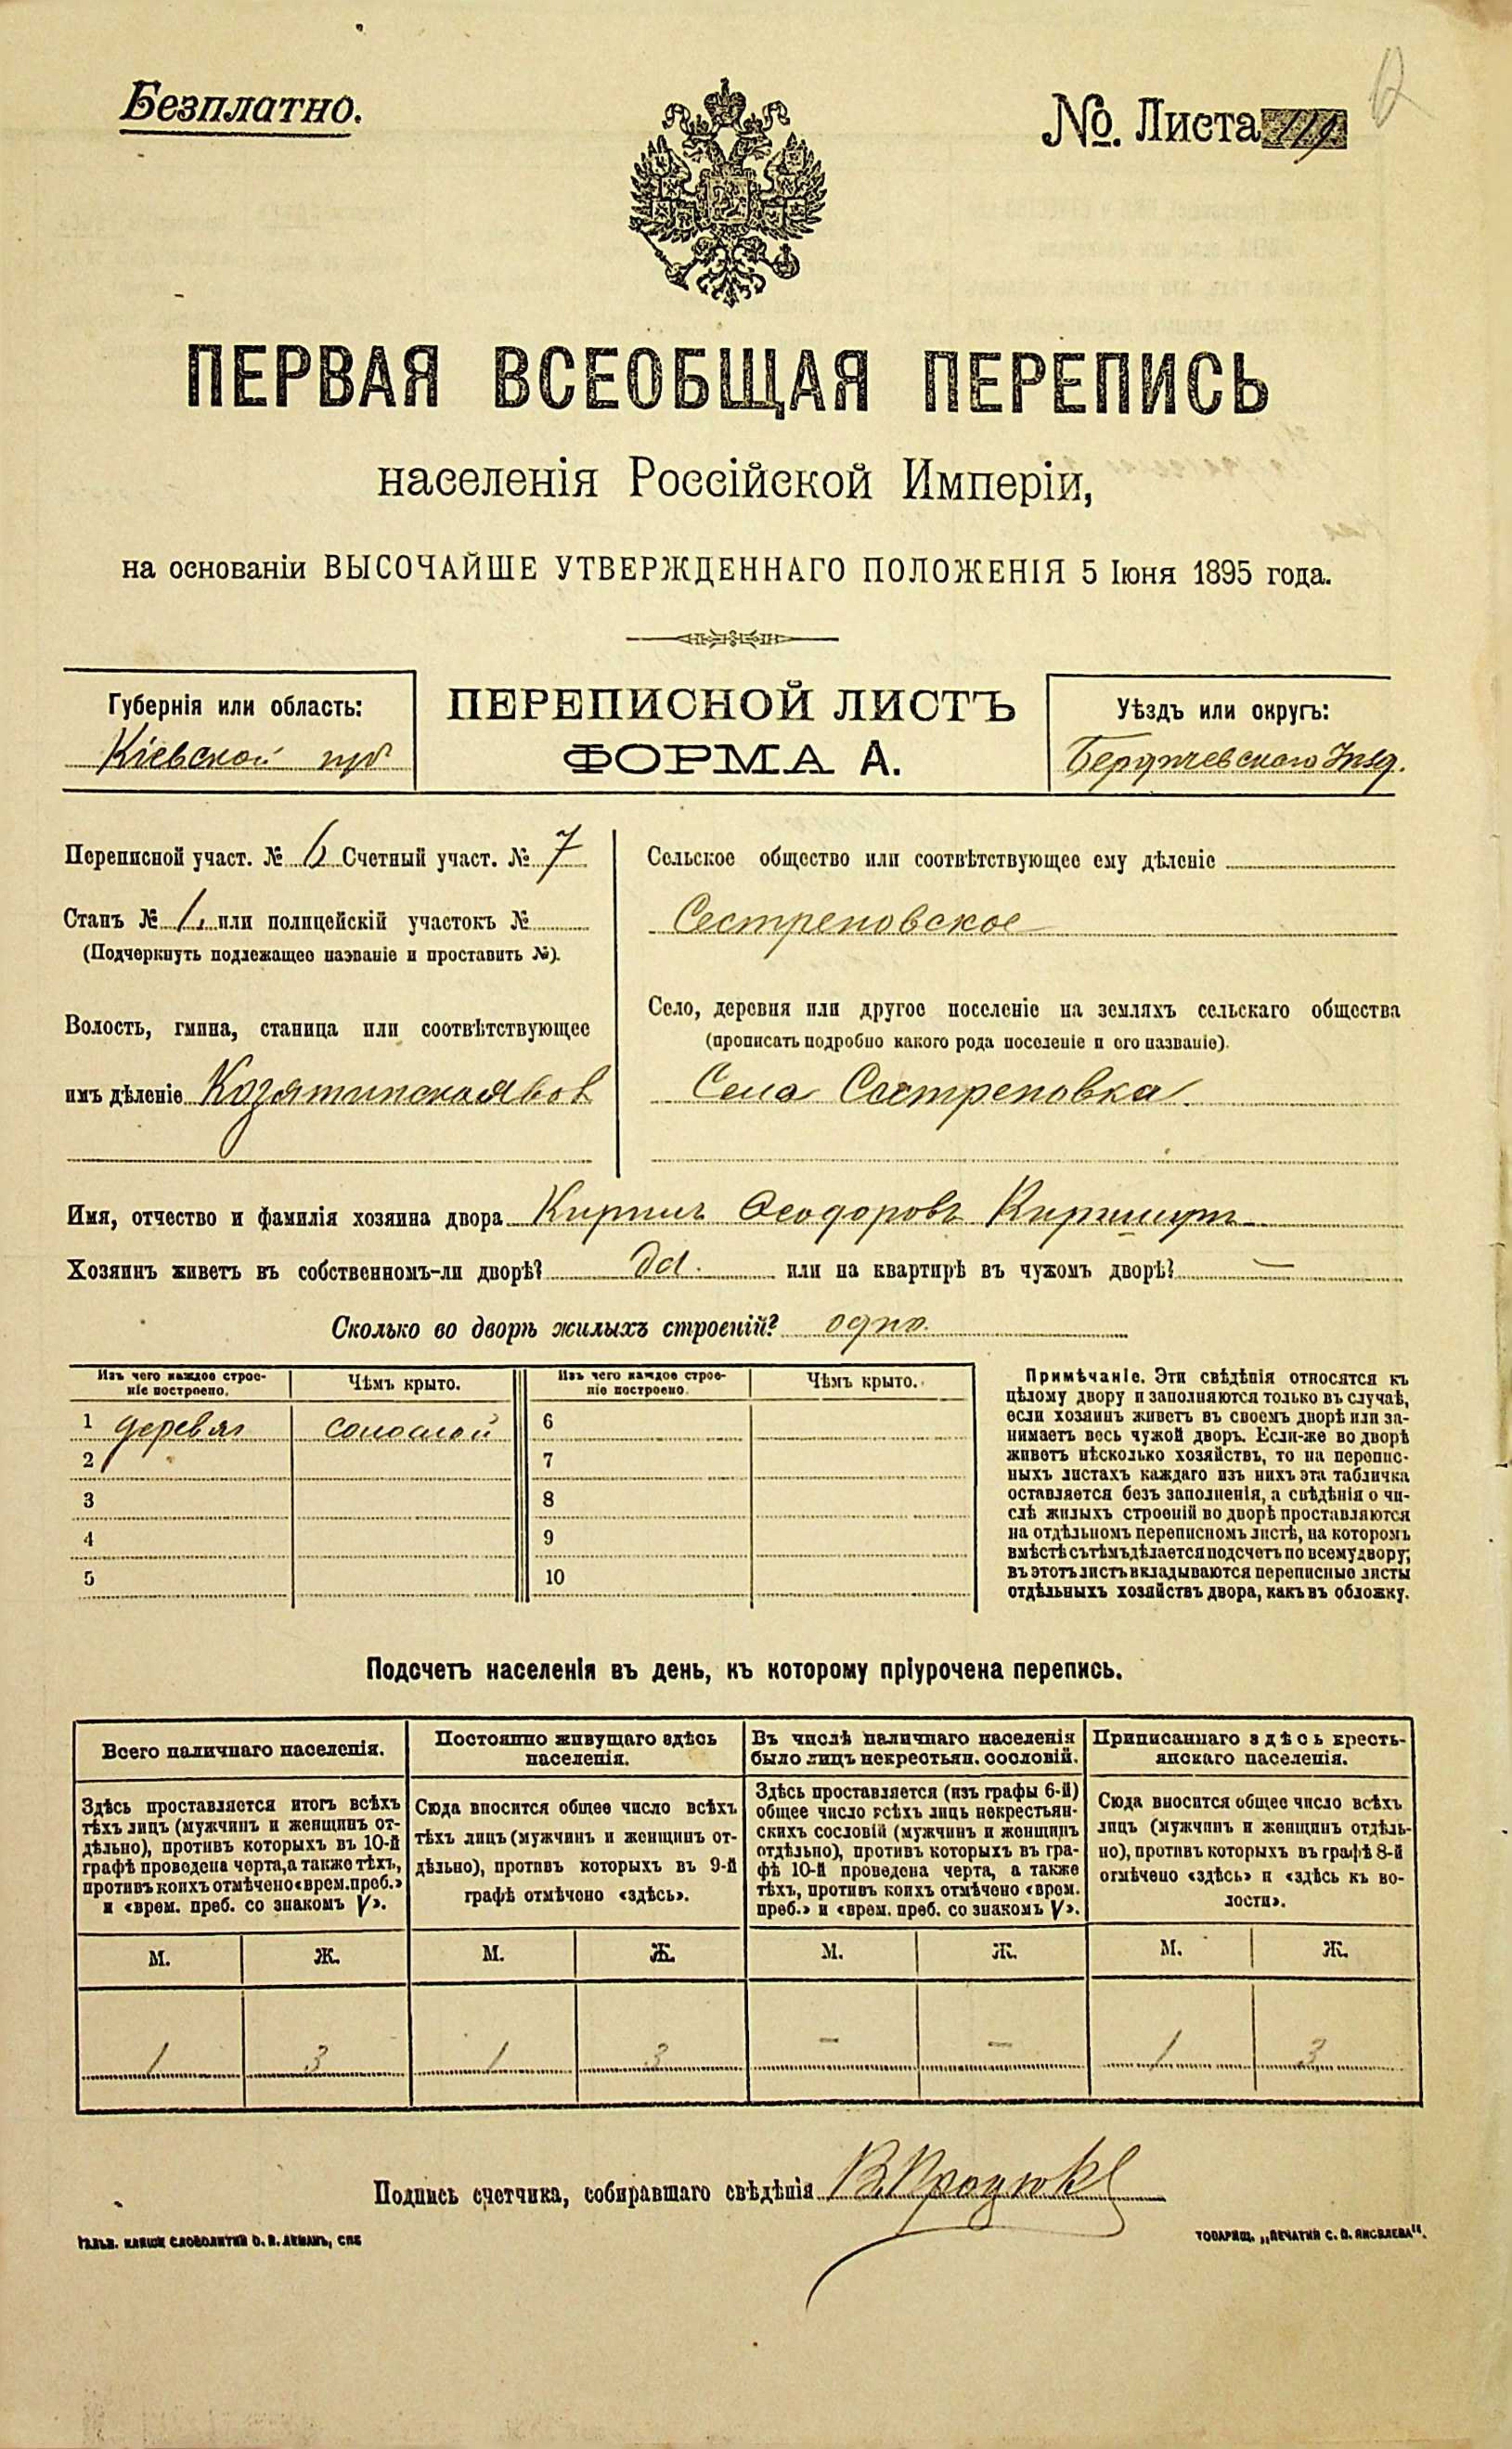 Безплатно.
№. Листа 119.
ПЕРВАЯ ВСЕОБЩАЯ ПЕРЕПИСЬ
населенія Россійской Имперіи,
на основаніи ВЫСОЧАЙШЕ УТВЕРЖДЕННАГО ПОЛОЖЕНІЯ 5 Іюня 1895 года.
Губернія или область:
Кіевской губ
ПЕРЕПИСНОЙ ЛИСТЪ
ФОРМА А.
Уѣздъ или округъ:
Бердичевскаго Уѣзд.
Переписной участ. № 6 Счетный участ. № 7
Станъ № 1. или полицейскій участокъ №
(Подчеркнуть подлежащее названіе и проставить №).
Волость, гмина, станица или соотвѣтствующее
имъ дѣленіе Козятинская вол
Сельское общество или соотвѣтствующее ему дѣленіе
Сестреновское
Село, деревня или другое поселеніе на земляхъ сельскаго общества
(прописать подробно какого рода поселеніе и его названіе).
Села Сестреновка
Имя, отчество и фамилія хозяина двора Кирилъ Ѳеодоровъ
Хозяинъ живетъ въ собственномъ-ли дворѣ? Да. или на квартирѣ въ чужомъ дворѣ? —
Сколько во дворѣ жилыхъ строеній? одно.
Изъ чего каждое строе-
ніе построено.
Чѣмъ крыто.
Изъ чего каждое строе-
ніе построено.
Чѣмъ крыто.
1 деревян соломой 6
2 7
3 8
4 9
5 10
Примѣчаніе. Эти свѣдѣнія относятся къ
цѣлому двору и заполняются только въ случаѣ,
если хозяинъ живетъ въ своемъ дворѣ или за-
нимаетъ весь чужой дворъ. Если-же во дворѣ
живетъ нѣсколько хозяйствъ, то на перепис-
ныхъ листахъ каждаго изъ нихъ эта табличка
оставляется безъ заполненія, а свѣдѣнія о чи-
слѣ жилыхъ строеній во дворѣ проставляются
на отдѣльномъ переписномъ листѣ, на которомъ
вмѣстѣ съ тѣмъ дѣлается подсчетъ по всему двору;
въ этотъ листъ вкладываются переписные листы
отдѣльныхъ хозяйствъ двора, какъ въ обложку.
Подсчетъ населенія въ день, къ которому пріурочена перепись.
Всего наличнаго населенія.
Постоянно живущаго здѣсь
населенія.
Въ числѣ наличнаго населенія
было лицъ некрестьян. сословій.
Приписаннаго здѣсь кресть-
янскаго населенія.
Здѣсь проставляется итогъ всѣхъ
тѣхъ лицъ (мужчинъ и женщинъ от-
дѣльно), противъ которыхъ въ 10-й
графѣ проведена черта, а также тѣхъ,
противъ коихъ отмѣчено «врем. преб.»
и «врем. преб. со знакомъ V».
Сюда вносится общее число всѣхъ
тѣхъ лицъ (мужчинъ и женщинъ от-
дѣльно), противъ которыхъ въ 9-й
графѣ отмѣчено «здѣсь».
Здѣсь проставляется (изъ графы 6-й)
общее число всѣхъ лицъ некрестьян-
скихъ сословій (мужчинъ и женщинъ
отдѣльно), противъ которыхъ въ гра-
фѣ 10-й проведена черта, а также
тѣхъ, противъ коихъ отмѣчено «врем.
преб.» и «врем. преб. со знакомъ V».
Сюда вносится общее число всѣхъ
лицъ (мужчинъ и женщинъ отдѣль-
но), противъ которыхъ въ графѣ 8-й
отмѣчено «здѣсь» и «здѣсь къ во-
лости».
М. Ж. М. Ж. М. Ж. М. Ж.
1 3 1 3 - - 1 3
Подпись счетчика, собиравшаго свѣдѣнія
ГАЛЬВ. КЛИШЕ СЛОВОЛИТНИ О. И. ЛЕМАНЪ, СПБ
ТОВАРИЩ. „ПЕЧАТНЯ С. П. ЯКОВЛЕВА".